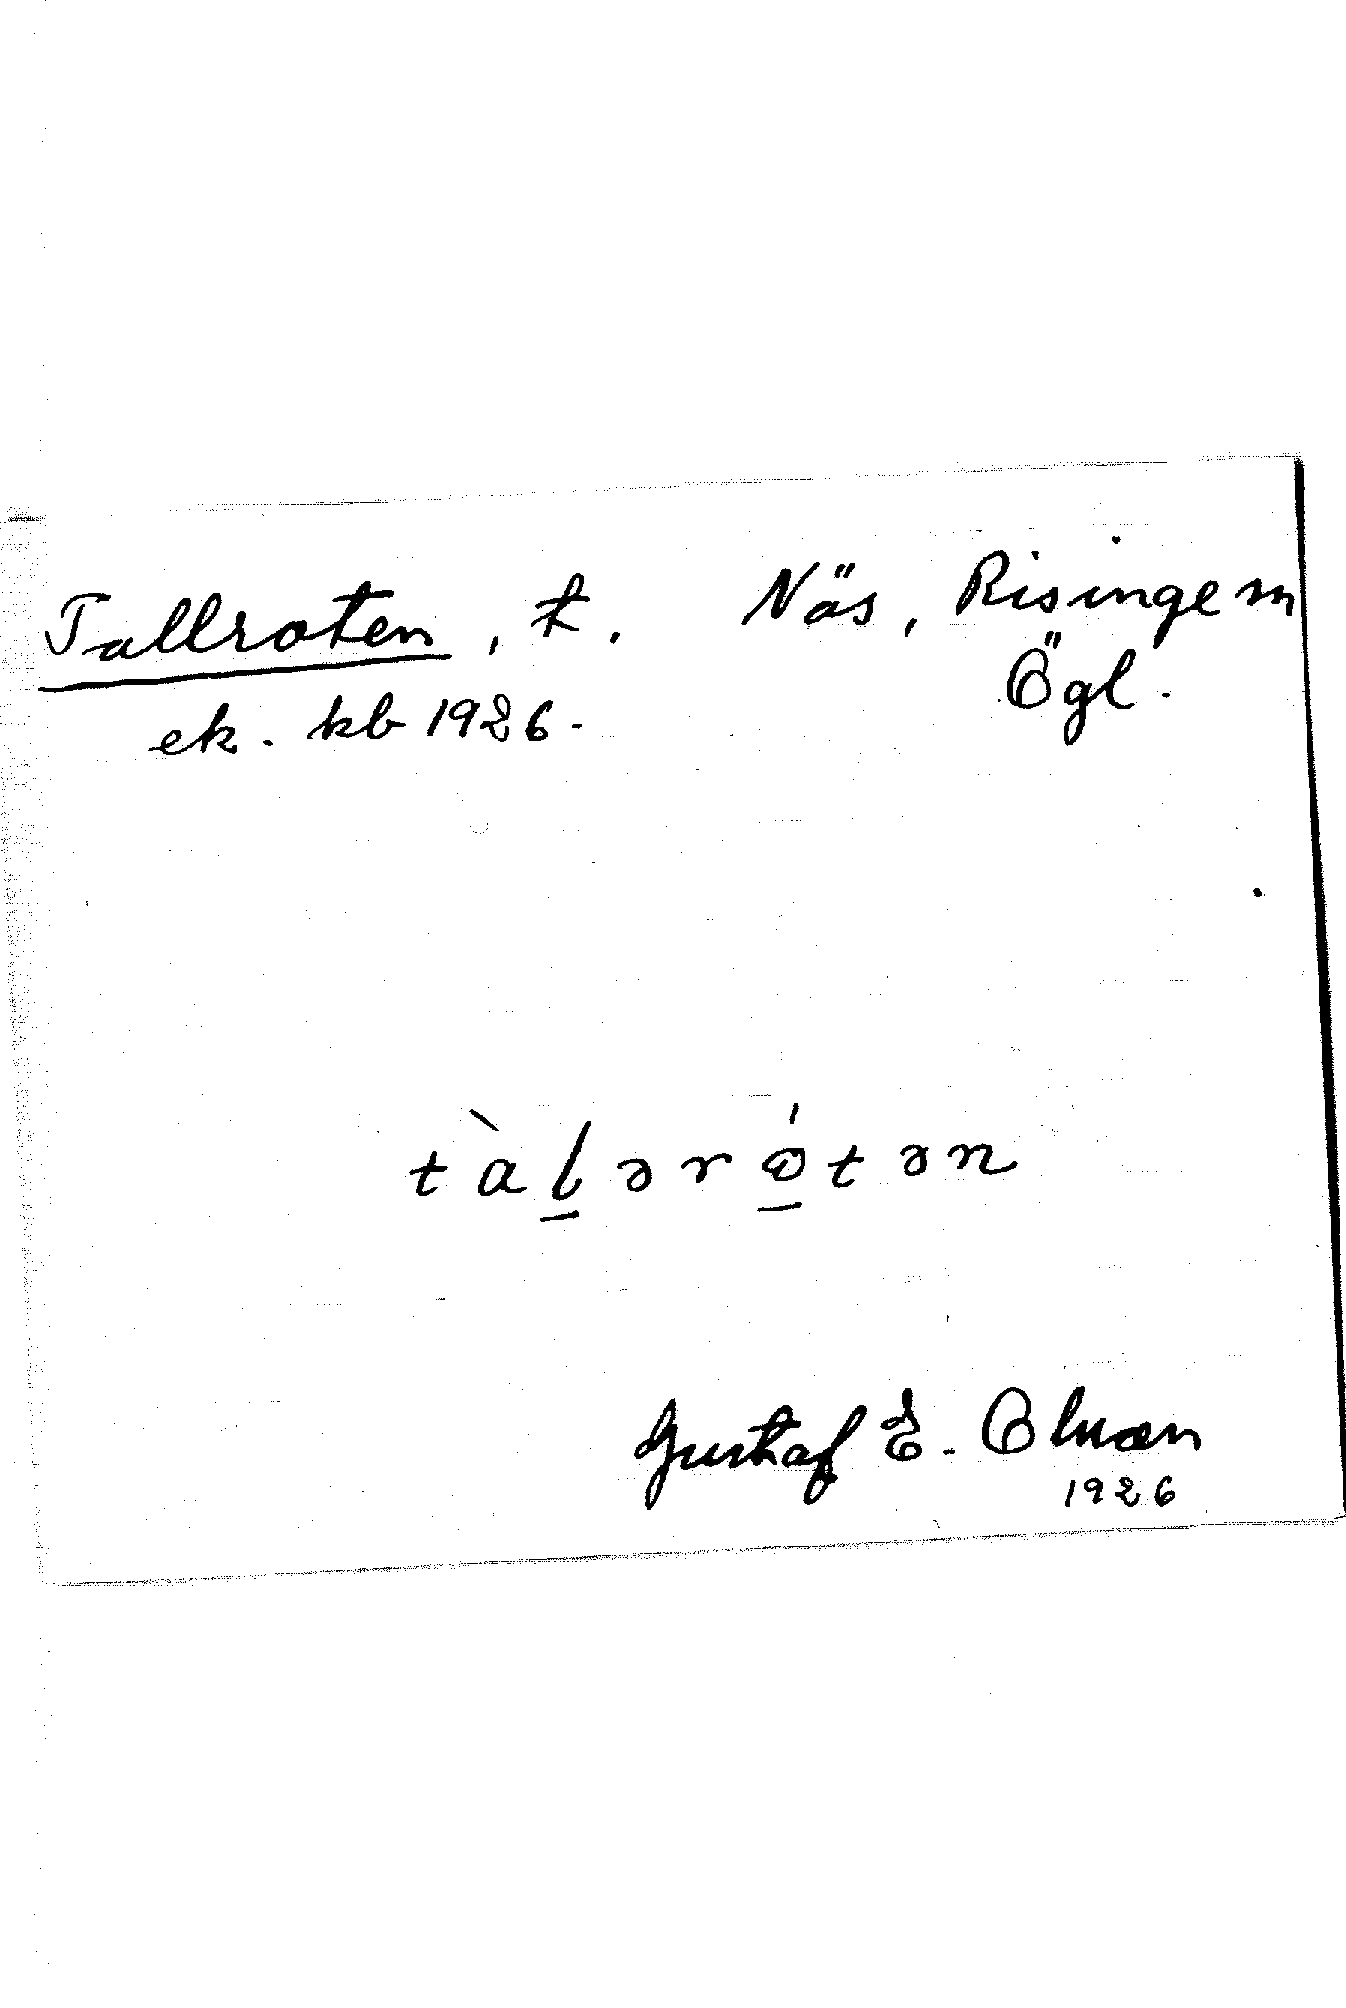 Tallroten, t. Näs, Risinge sn
Ögl.
ek. kb 1926.
tàl̲əró̲tən
Gustaf E.
1926